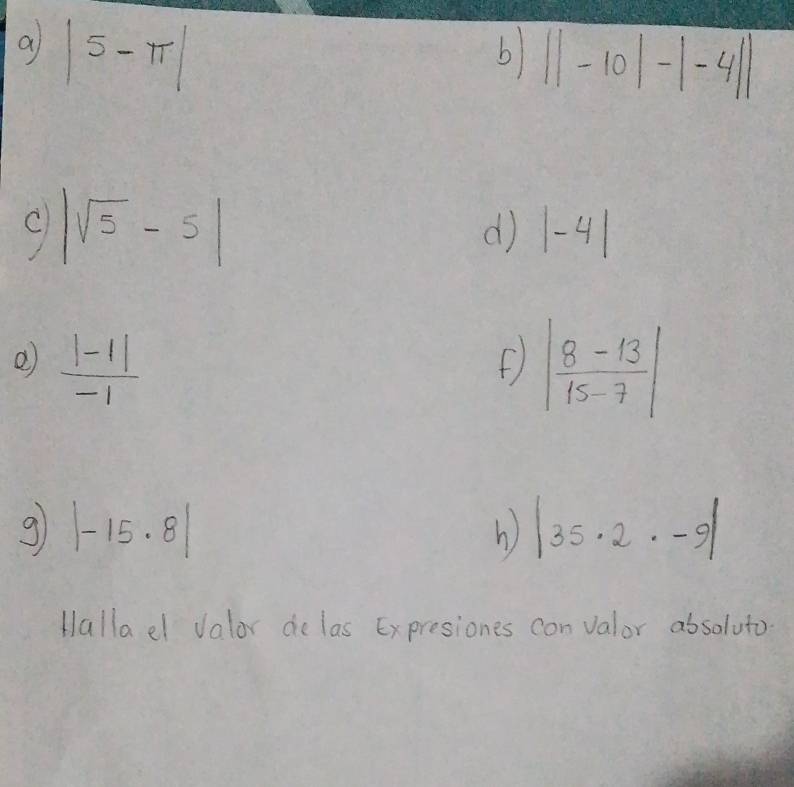 a) |5 - π| b) ||-10| - |-4||
c) |√5 - 5| d) |-4|
e) |-1| / -1 f) |8 - 13 / 15 - 7|
g) |-15 . 8| h) |35 . 2 . -9|
Halla el valor de las Expresiones con valor absoluto.